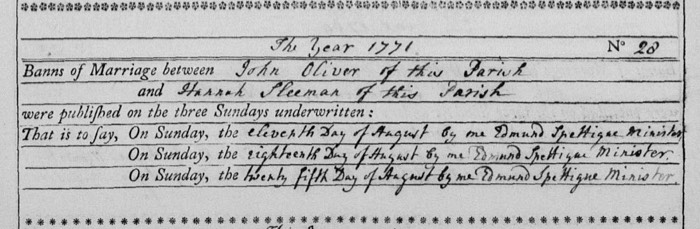 The Year 1771. No 28
Banns of Marriage between John Oliver of this Parish
and Hannah Sleeman of this Parish
were publiſhed on the three Sundays underwritten:
That is to ſay, On Sunday, the eleventh Day of August by me Edmund Spettigue Minister
On Sunday, the eighteenth Day of August by me Edmund Spettigue Minister.
On Sunday, the twenty fifth Day of August by me Edmund Spettigue Minister.